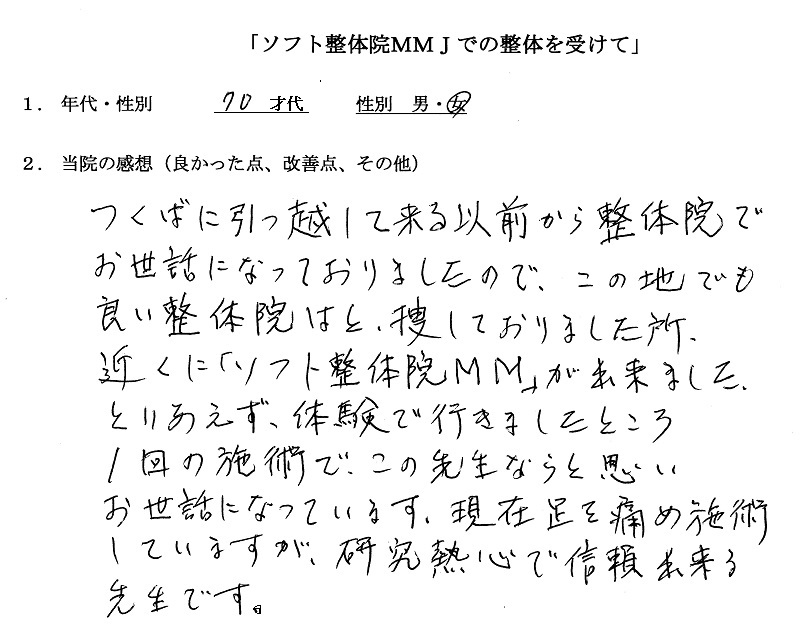 「ソフト整体院MMJでの整体を受けて」
1. 年代・性別 70 才代 性別 男・女
2. 当院の感想（良かった点、改善点、その他）
つくばに引っ越して来る以前から整体院で
お世話になっておりましたので、この地でも
良い整体院はと、捜しておりました所、
近くに「ソフト整体院MM」が出来ました、
とりあえず、体験で行きましたところ
1回の施術で、この先生ならと思い
お世話になっています、現在足を痛め施術
していますが、研究熱心で信頼出来る
先生です。